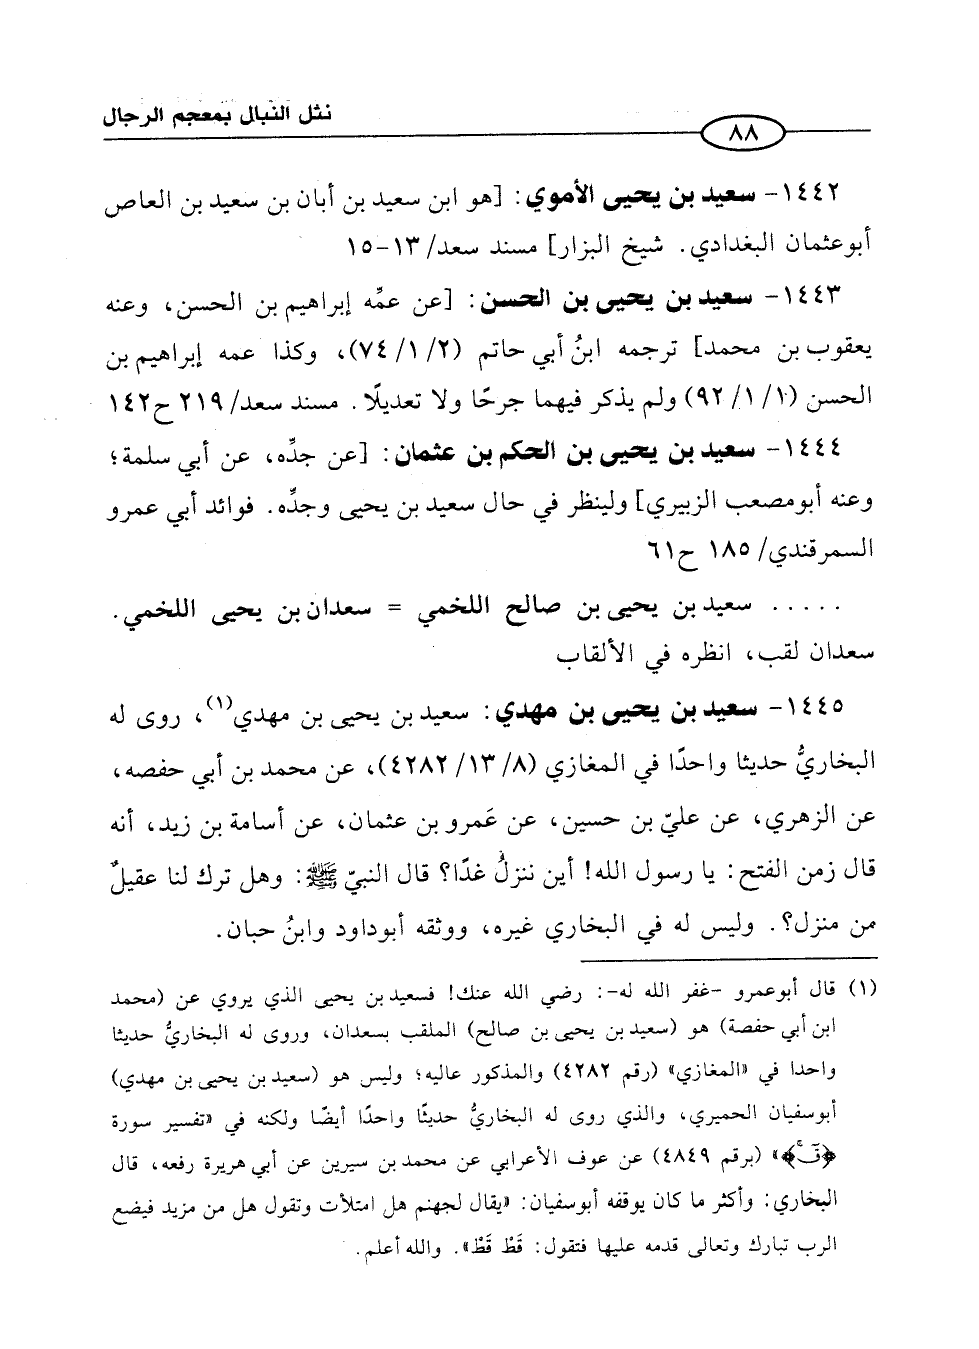 نثل النبال بمعجم الرجال
٨٨
١٤٤٢- سعيد بن يحيى الأموي: [هو ابن سعيد بن أبان بن سعيد بن العاص
أبوعثمان البغدادي. شيخ البزار] مسند سعد/ ١٣-١٥
١٤٤٣- سعيد بن يحيى بن الحسن: [عن عمِّه إبراهيم بن الحسن، وعنه
يعقوب بن محمد] ترجمه ابنُ أبي حاتم (٧٤/١/٢)، وكذا عمه إبراهيم بن
الحسن (٩٢/١/١) ولم يذكر فيهما جرحًا ولا تعديلًا. مسند سعد/ ٢١٩ ح١٤٢
١٤٤٤- سعيد بن يحيى بن الحكم بن عثمان: [عن جدِّه، عن أبي سلمة؛
وعنه أبومصعب الزبيري] ولينظر في حال سعيد بن يحيى وجدِّه. فوائد أبي عمرو
السمرقندي/ ١٨٥ ح٦١
..... سعيد بن يحيى بن صالح اللخمي = سعدان بن يحيى اللخمي.
سعدان لقب، انظره في الألقاب
١٤٤٥- سعيد بن يحيى بن مهدي: سعيد بن يحيى بن مهدي(١)، روى له
البخاريُّ حديثا واحدًا في المغازي (٨/ ١٣/ ٤٢٨٢)، عن محمد بن أبي حفصه،
عن الزهري، عن عليّ بن حسين، عن عَمرو بن عثمان، عن أسامة بن زيد، أنه
قال زمن الفتح: يا رسول الله! أين ننزلُ غدًا؟ قال النبيّ ﷺ: وهل ترك لنا عقيلٌ
من منزل؟. وليس له في البخاري غيره، ووثقه أبوداود وابنُ حبان.
(١) قال أبوعمرو -غفر الله له-: رضي الله عنك! فسعيد بن يحيى الذي يروي عن (محمد
ابن أبي حفصة) هو (سعيد بن يحيى بن صالح) الملقب بسعدان، وروى له البخاريُّ حديثا
واحدا في «المغازي» (رقم ٤٢٨٢) والمذكور عاليه؛ وليس هو (سعيد بن يحيى بن مهدي)
أبوسفيان الحميري، والذي روى له البخاريُّ حديثًا واحدًا أيضًا ولكنه في «تفسير سورة
﴿قٓ﴾» (برقم ٤٨٤٩) عن عوف الأعرابي عن محمد بن سيرين عن أبي هريرة رفعه، قال
البخاري: وأكثر ما كان يوقفه أبوسفيان: «يقال لجهنم هل امتلأت وتقول هل من مزيد فيضع
الرب تبارك وتعالى قدمه عليها فتقول: قَطْ قَطْ». والله أعلم.